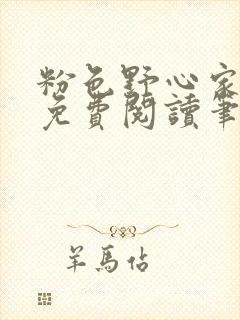 粉色野心家
免費閱讀筆
羊馬佔